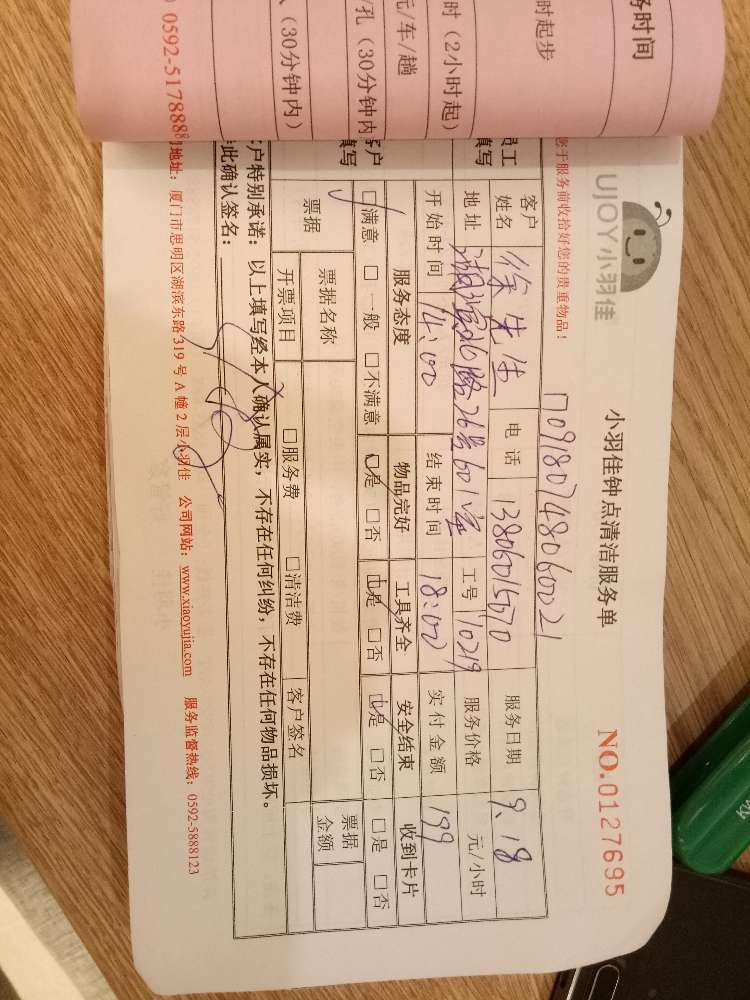 务时间
时起步
时（2小时起）
元/车/趟
孔（30分钟内）
（30分钟内）
0592-5178888
UJOY小羽佳
小羽佳钟点清洁服务单
NO.0127695
您于服务前收拾好您的贵重物品！
1709180748060021
员工
填写
客户姓名 徐先生 电话 13806015070 服务日期 9.18
地址 湖滨北路26号601室 工号 10219 服务价格 元/小时
开始时间 14:00 结束时间 18:00 实付金额 199
客户
填写
服务态度 物品完好 工具齐全 安全结束 收到卡片
□满意 □一般 □不满意 □是 □否 □是 □否 □是 □否 □是 □否
票据 票据名称 票据金额
开票项目 □服务费 □清洁费 客户签名
客户特别承诺：以上填写经本人确认属实，不存在任何纠纷，不存在任何物品损坏。
此确认签名：
地址：厦门市思明区湖滨东路319号A幢2层小羽佳 公司网站：www.xiaoyujia.com 服务监督热线：0592-5888123